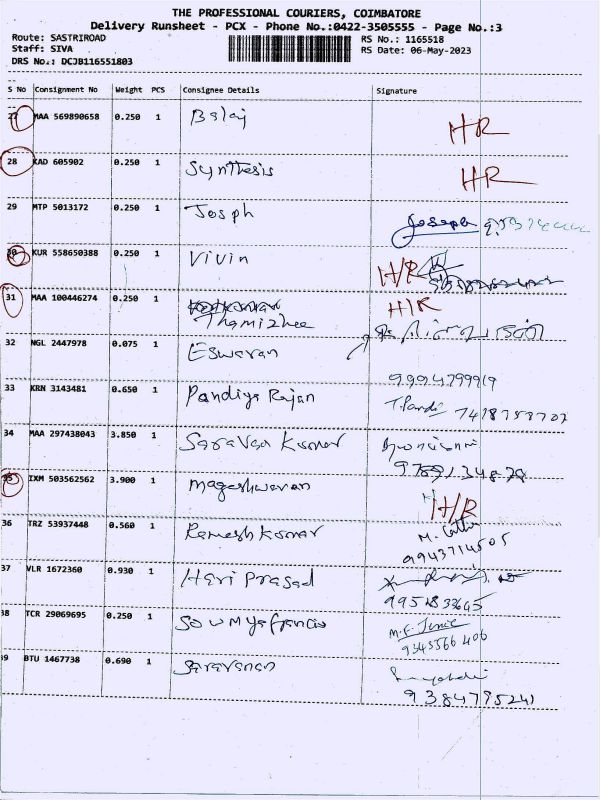 THE PROFESSIONAL COURIERS, COIMBATORE
Delivery Runsheet - PCX - Phone No.:0422-3505555 - Page No.:3
Route: SASTRIROAD RS No.: 1165518
Staff: SIVA RS Date: 06-May-2023
DRS No.: DCJB116551803
S No Consignment No Weight PCS Consignee Details Signature
27 MAA 569890658 0.250 1 Balaj HR
28 KAD 605902 0.250 1 Synthesis HR
29 MTP 5013172 0.250 1 Josph Joseph
30 KUR 558650388 0.250 1 Vivin H/R
31 MAA 100446274 0.250 1 Thamizhee H/R
32 NGL 2447978 0.075 1 Eswaran
9994799919
33 KRN 3143481 0.650 1 Pandiya Rajan T.Pandi 7418758707
34 MAA 297438043 3.850 1 Saravan Kumar
35 IXM 503562562 3.900 1 Mageshwaran H/R
36 TRZ 53937448 0.560 1 Ramesh Kumar
9943714505
37 VLR 1672360 0.930 1 Hari Prasad
38 TCR 29069695 0.250 1 Sowmya francis
9345566406
39 BTU 1467738 0.690 1 Saravanan
9384795241